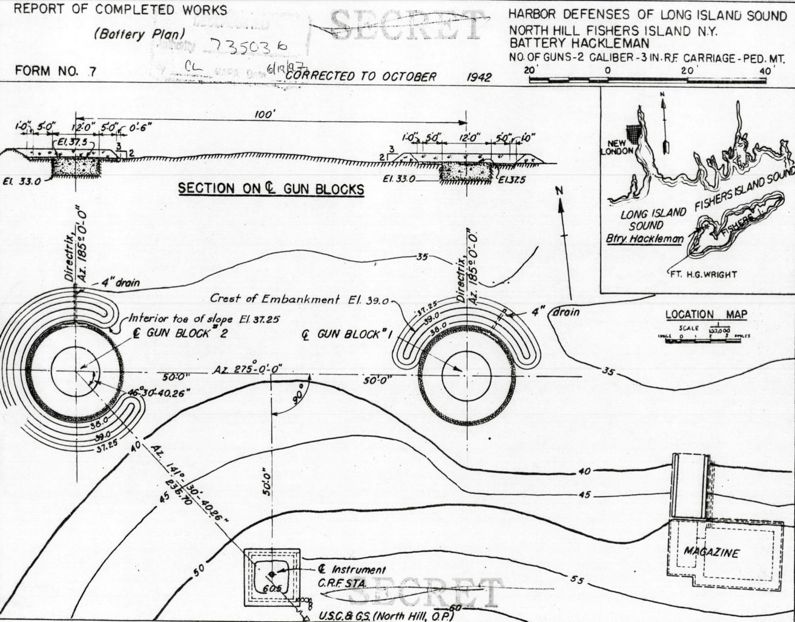 REPORT OF COMPLETED WORKS
(Battery Plan)
735036
CL
FORM NO. 7
CORRECTED TO OCTOBER 1942
SECRET
HARBOR DEFENSES OF LONG ISLAND SOUND
NORTH HILL FISHERS ISLAND N.Y.
BATTERY HACKLEMAN
NO. OF GUNS-2 CALIBER-3 IN. R.F. CARRIAGE-PED. MT.
20' 0 20' 40'
100'
1'-0" 5'-0" 12'-0" 5'-0" 0'-6"
El. 37.5
3
2
El. 33.0
1'-0" 5'-0" 12'-0" 5'-0" 1'-0"
3
2
El. 33.0
El. 37.5
SECTION ON ℄ GUN BLOCKS
N
NEW LONDON
FISHERS ISLAND SOUND
LONG ISLAND SOUND
FISHERS I.
Btry. Hackleman
FT. H.G. WRIGHT
N
LOCATION MAP
SCALE
MILES
Directrix, Az. 185°0'-0"
4" drain
Interior toe of slope El. 37.25
℄ GUN BLOCK #2
Crest of Embankment El. 39.0
℄ GUN BLOCK #1
Directrix, Az. 185°0'-0"
37.25
39.0
38.0
4" drain
35
35
50'-0" Az. 275°-0'-0" 50'-0"
46°30'-40.26"
90°
38.0
39.0
37.25
40
45
50
Az. 141°-30'-40.26"
236.70
50'-0"
40
45
55
60
MAGAZINE
℄ Instrument
C.R.F. STA.
60.5
SECRET
U.S.C. & G.S. (North Hill, O.P.)